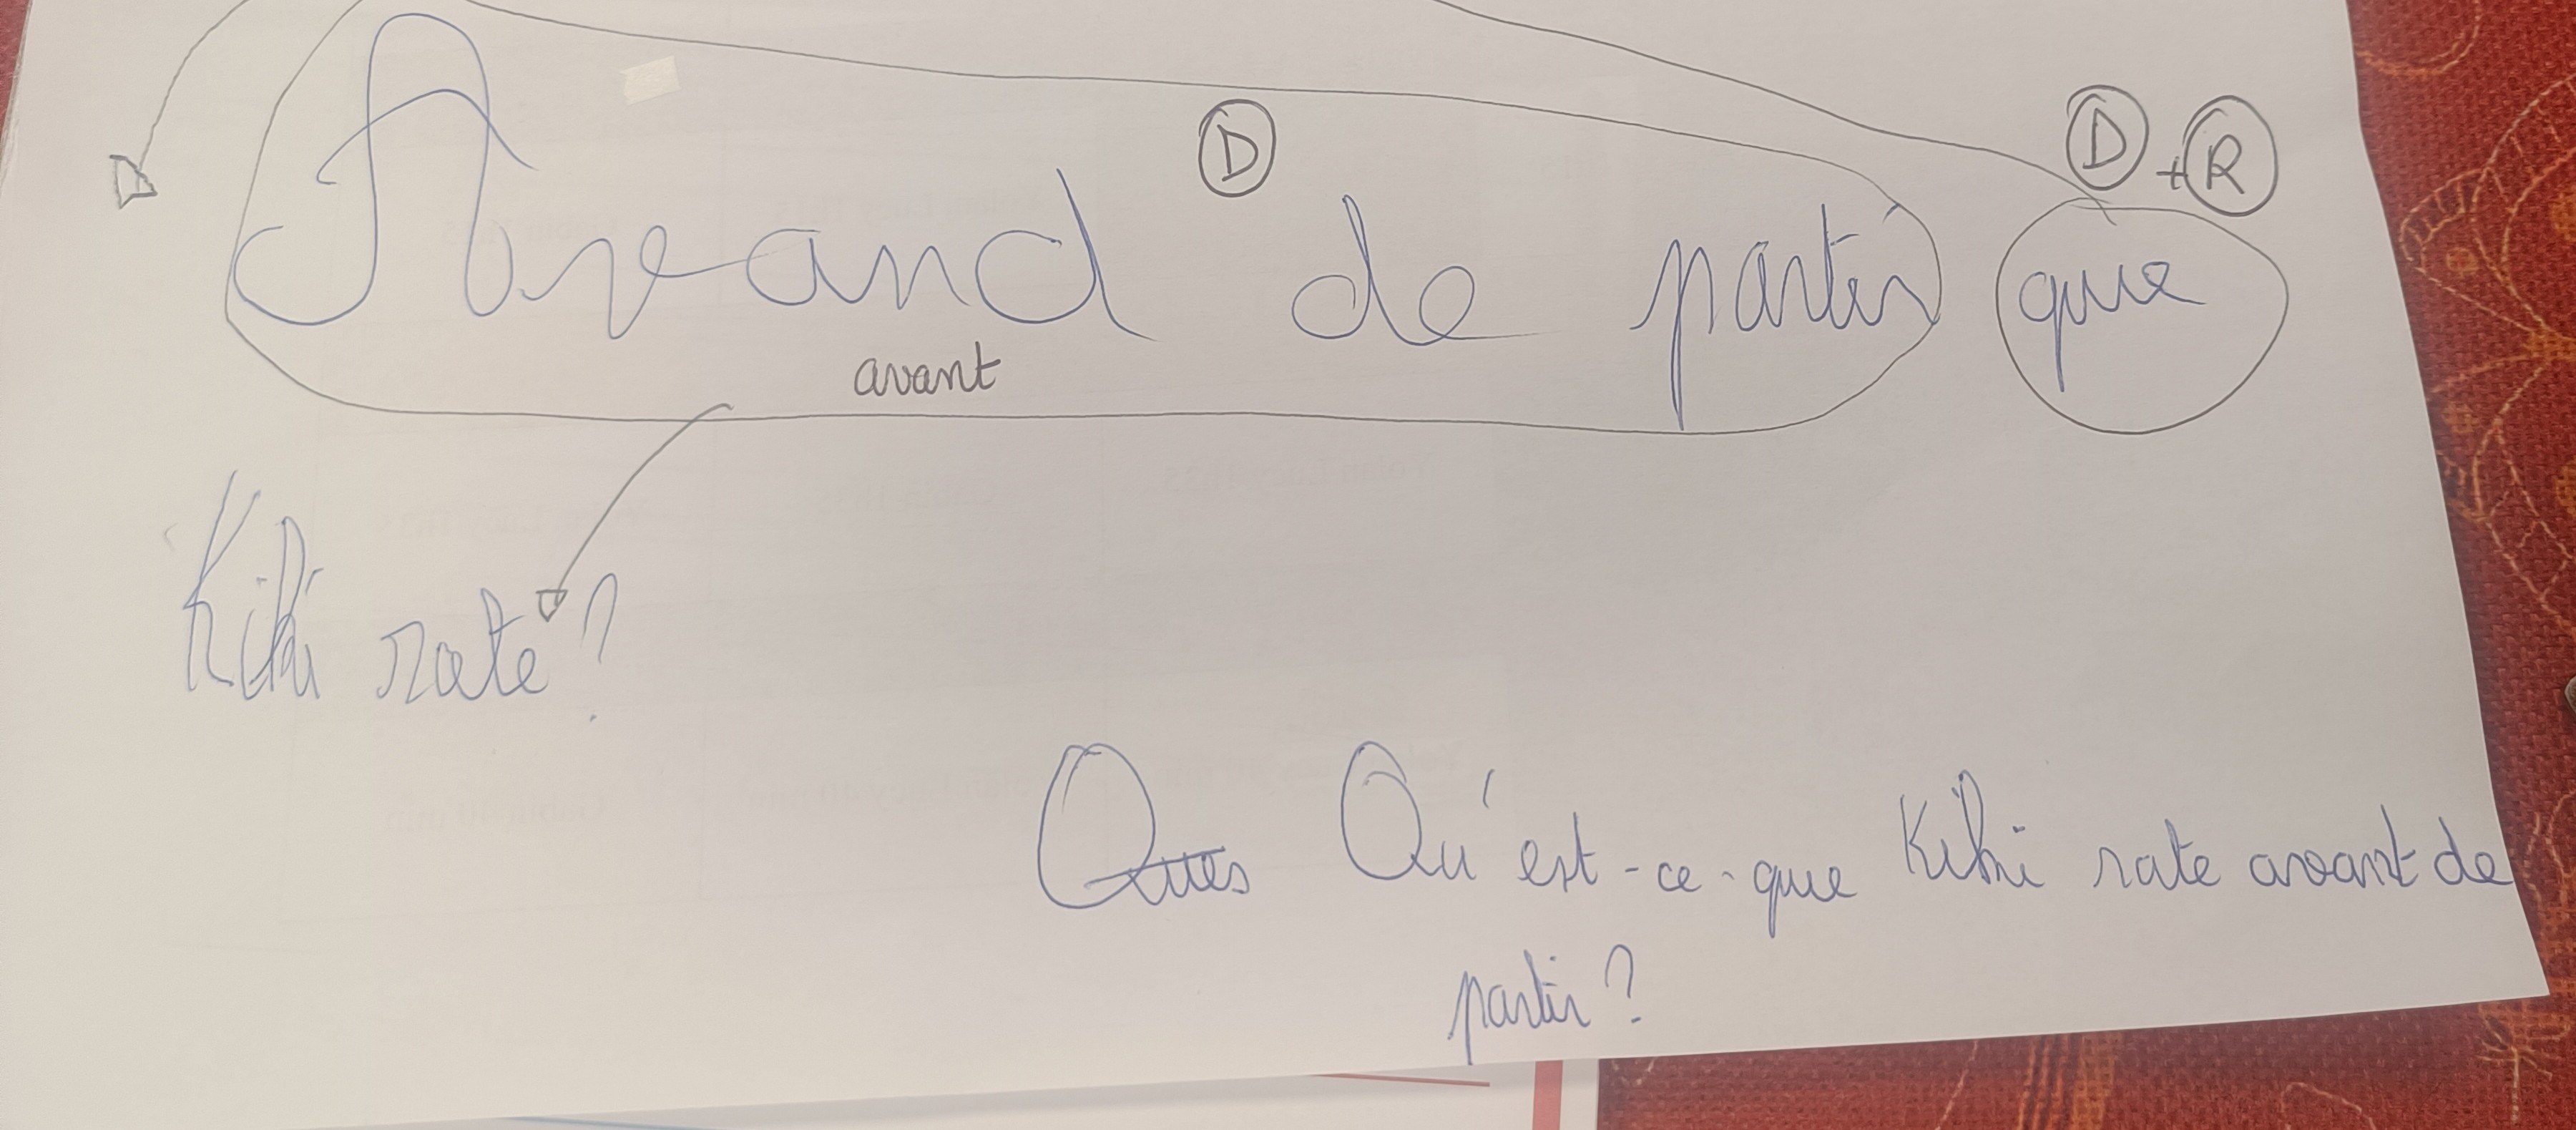 D
D + R
Avand de partir que
avant
Kiki rate ?
Ques Qu'est-ce-que Kiki rate avant de
partir ?